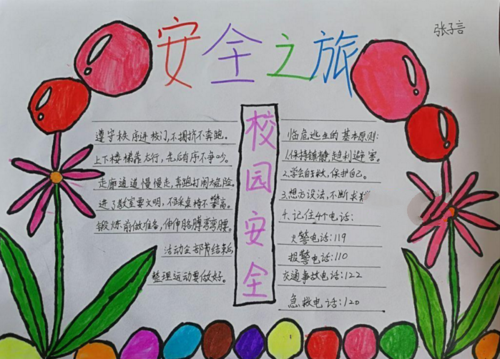 安全之旅
张子言
校园安全
遵守秩序进校门,不拥挤不奔跑。
上下楼梯靠右行,先后有序不争吵。
走廊通道慢慢走,奔跑打闹危险。
进了教室要文明,不碰桌椅不攀高。
锻炼前做准备,伸伸胳膊弯弯腰。
活动全部结束后
整理运动要做好。
临危逃生的基本原则:
1.保持镇静,趋利避害。
2.学会自救,保护自己。
3.想方设法,不断求救
4.记住4个电话:
火警电话:119
报警电话:110
交通事故电话:122
急救电话:120